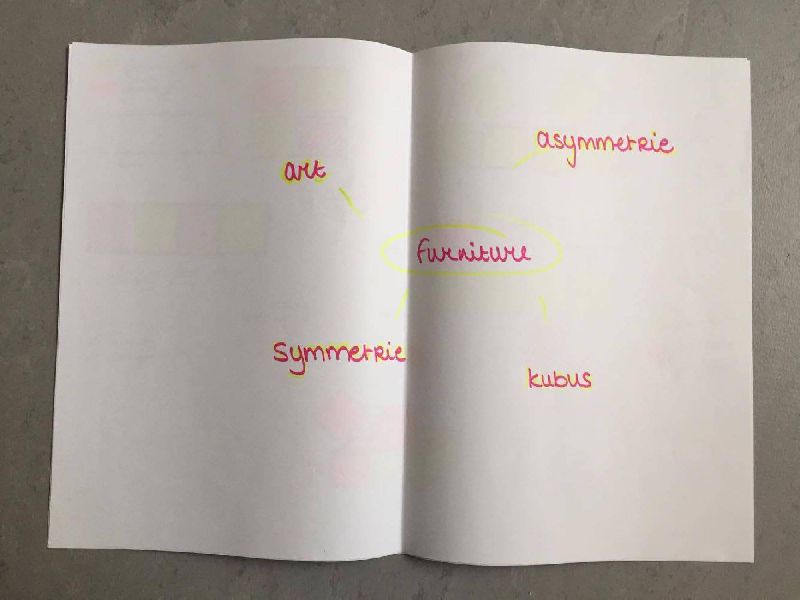 asymmetrie
art
furniture
symmetrie
kubus